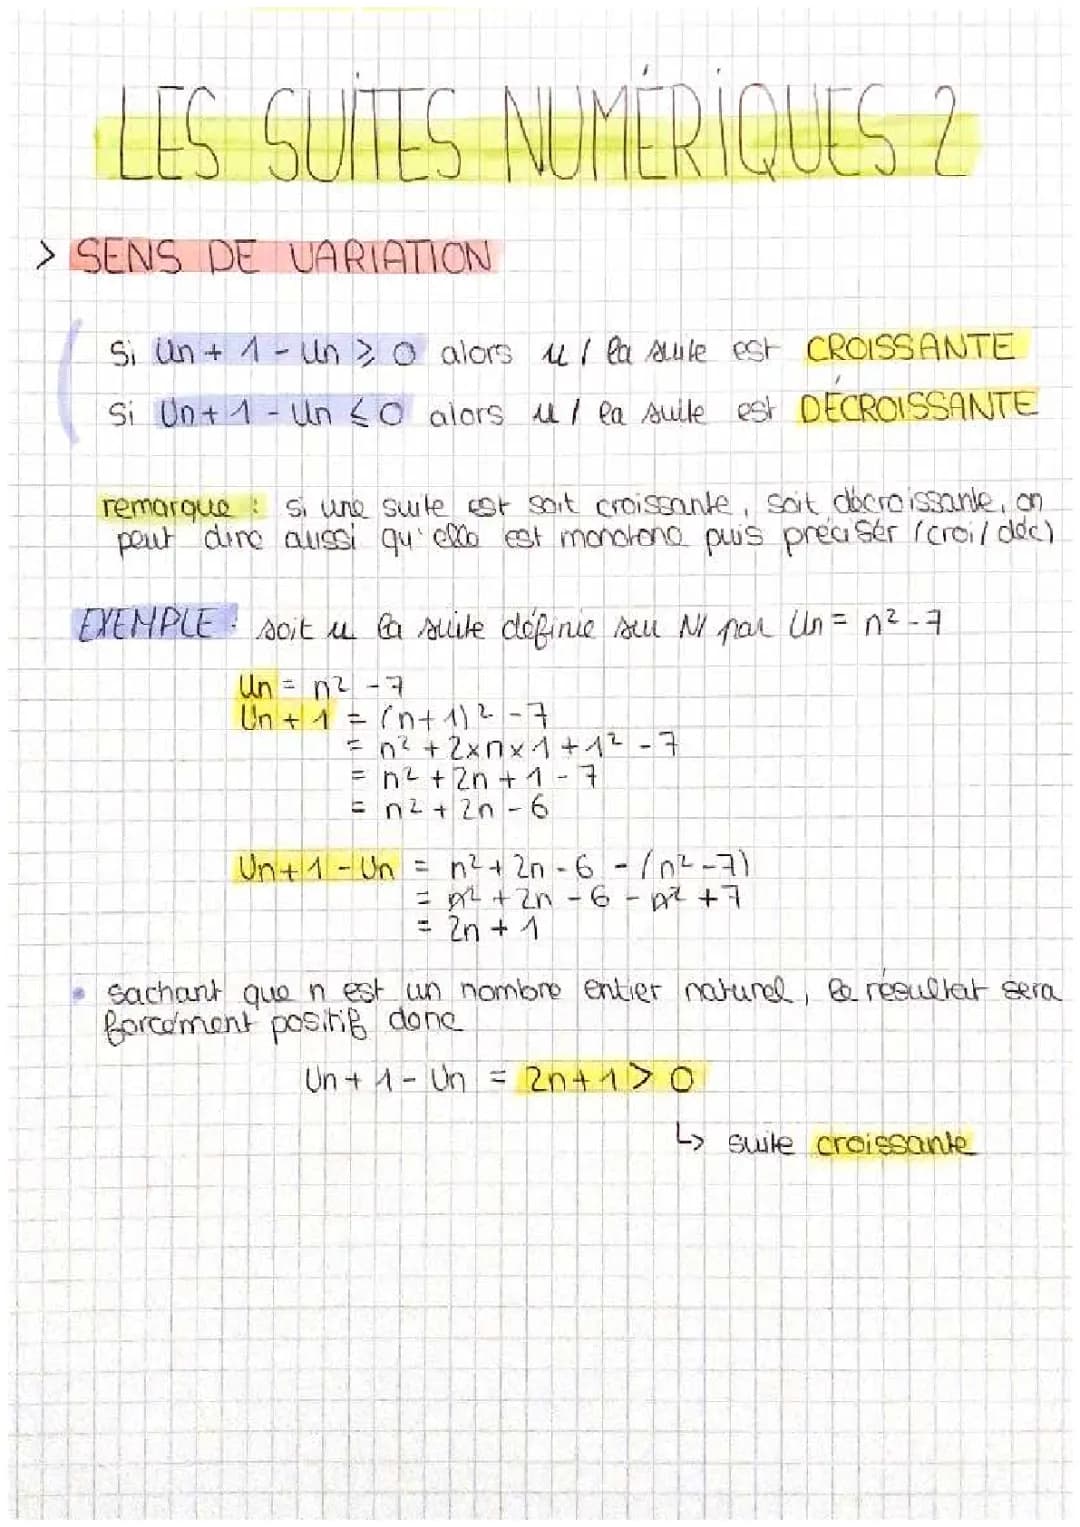 LES SUITES NUMÉRIQUES 2
> SENS DE VARIATION
Si Un + 1 - Un ⩾ 0 alors u / la suite est CROISSANTE
Si Un + 1 - Un ⩽ 0 alors u / la suite est DÉCROISSANTE
remarque : si une suite est soit croissante, soit décroissante, on
peut dire aussi qu'elle est monotone puis préciser (croi / déc)
EXEMPLE : soit u la suite définie sur N par Un = n² - 7
Un = n² - 7
Un + 1 = (n + 1)² - 7
= n² + 2×n×1 + 1² - 7
= n² + 2n + 1 - 7
= n² + 2n - 6
Un + 1 - Un = n² + 2n - 6 - (n² - 7)
= n² + 2n - 6 - n² + 7
= 2n + 1
• sachant que n est un nombre entier naturel, le résultat sera
forcément positif donc
Un + 1 - Un = 2n + 1 > 0
↳ suite croissante